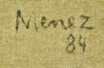 Menez
84